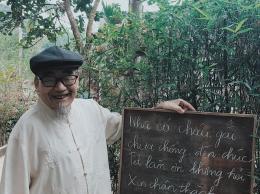 Nhà có cháu gái
chưa chồng đến chúc
Tết làm ơn không hỏi
Xin chân th